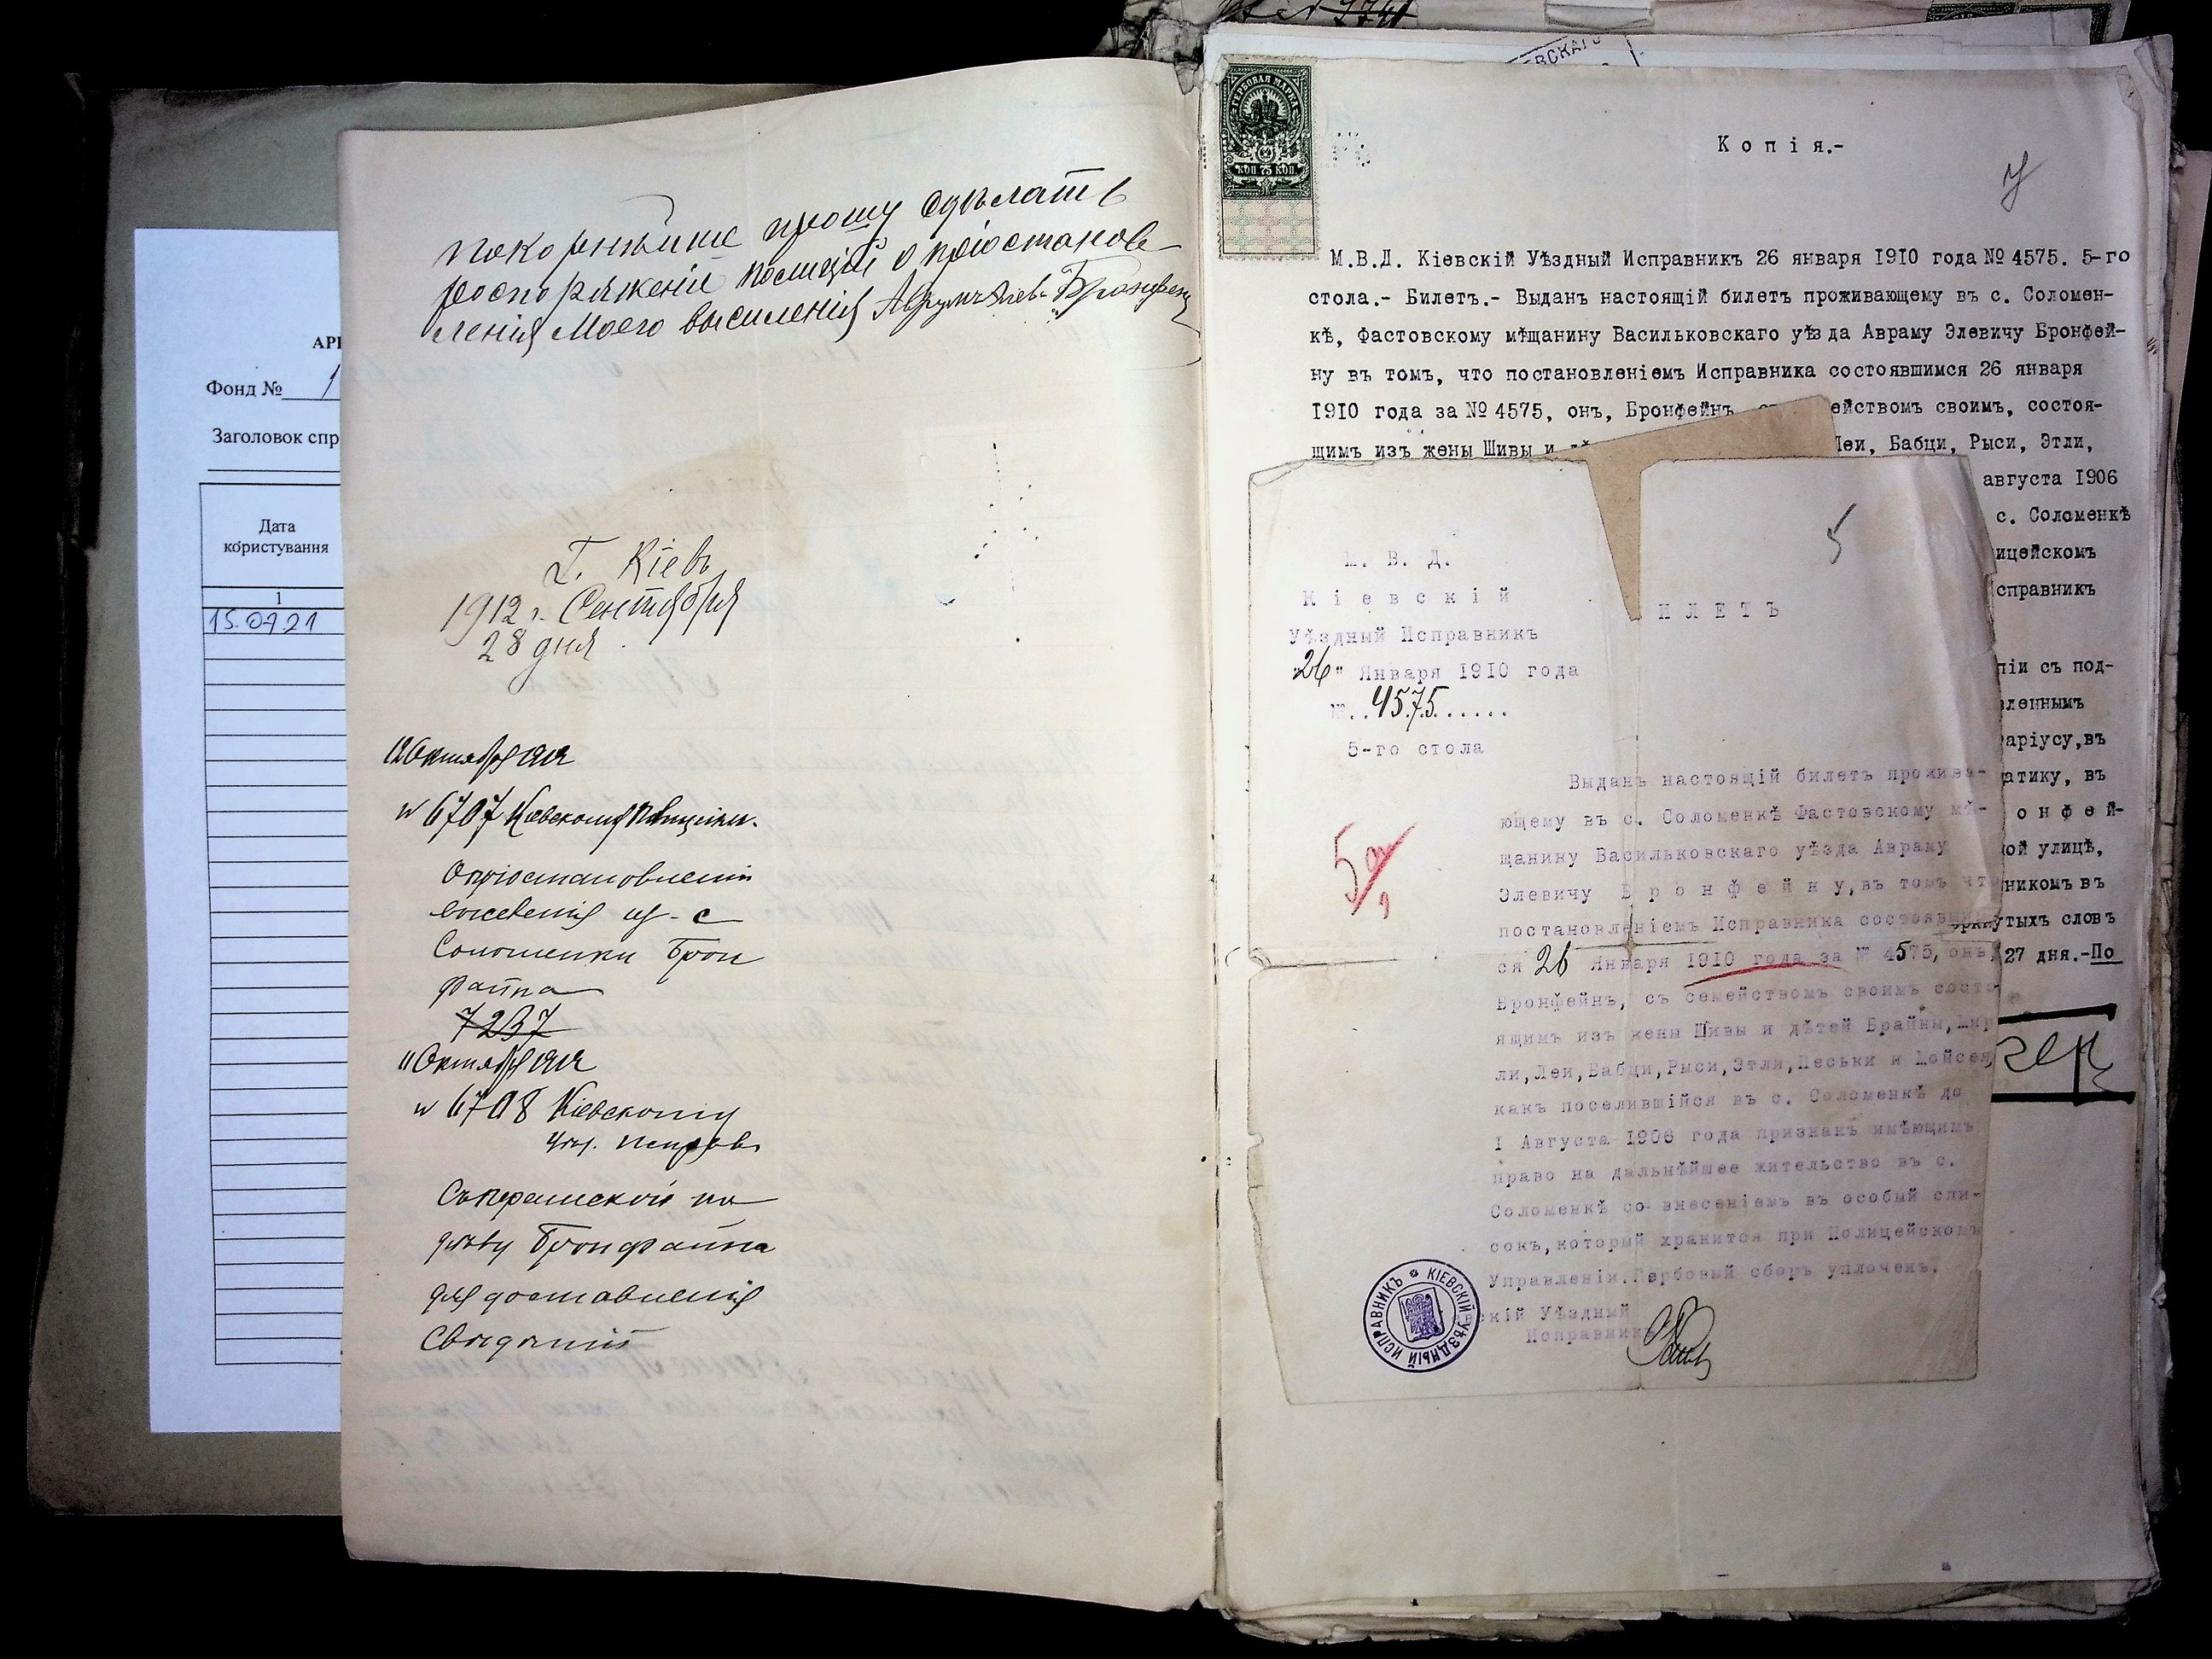 АРХ
Фонд №
Заголовок спр
Дата
користування
1
15.07.21
покорнѣйше прошу сдѣлать
роспоряженіе полиціи о пріостанов-
ленія моего выселенія
Г. Кіевъ
1912 г. Сентября
28 дня
Октября 1912
№ 6707 Кіевскому
О пріостановленіи
выселенія из с
Соломенки Брон
файна
7237
11 Октября 1912
№ 6708 Кіевскому
Уѣз. Исправ
дѣлу Бронфайна
для доставленія
Свѣдѣній
ВСКАГО
ГЕРБОВАЯ МАРКА
КОП 75 КОП
Копія.-
М.В.Д. Кіевскій Уѣздный Исправникъ 26 января 1910 года № 4575. 5-го
стола.- Билетъ.- Выданъ настоящій билетъ проживающему въ с. Соломен-
кѣ, Фастовскому мѣщанину Васильковскаго уѣзда Авраму Элевичу Бронфей-
ну въ томъ, что постановленіемъ Исправника состоявшимся 26 января
1910 года за № 4575, онъ, Бронфейнъ, ействомъ своимъ, состоя-
щимъ изъ жены Шивы и Леи, Бабци, Рыси, Этли,
августа 1906
с. Соломенкѣ
ицейскомъ
справникъ
піи съ под-
вленнымъ
аріусу, въ
атику, въ
онфей-
ой улицѣ,
никомъ въ
утыхъ словъ
27 дня.-По
5
М. В. Д.
Кіевскій
Уѣздный Исправникъ
"26" Января 1910 года
№..4575......
5-го стола
ИЛЕТЪ
Выданъ настоящій билетъ прожива-
ющему въ с. Соломенкѣ Фастовскому мѣ-
щанину Васильковскаго уѣзда Авраму
Элевичу Бронфейну, въ томъ что
постановленіемъ Исправника состоявши
ся 26 Января 1910 года за № 4575, онъ,
Бронфейнъ, съ семействомъ своимъ состо
ящимъ изъ жены Шивы и дѣтей Брайны, Мир
ли, Леи, Бабци, Рыси, Этли, Песьки и Мойсея,
какъ поселившійся въ с. Соломенкѣ до
1 Августа 1906 года признанъ имѣющимъ
право на дальнѣйшее жительство въ с.
Соломенкѣ со внесеніемъ въ особый спи-
сокъ, который хранится при Полицейскомъ
Управленіи. Гербовый сборъ уплоченъ.
скій Уѣздный
Исправникъ
КІЕВСКІЙ УѢЗДНЫЙ ИСПРАВНИКЪ